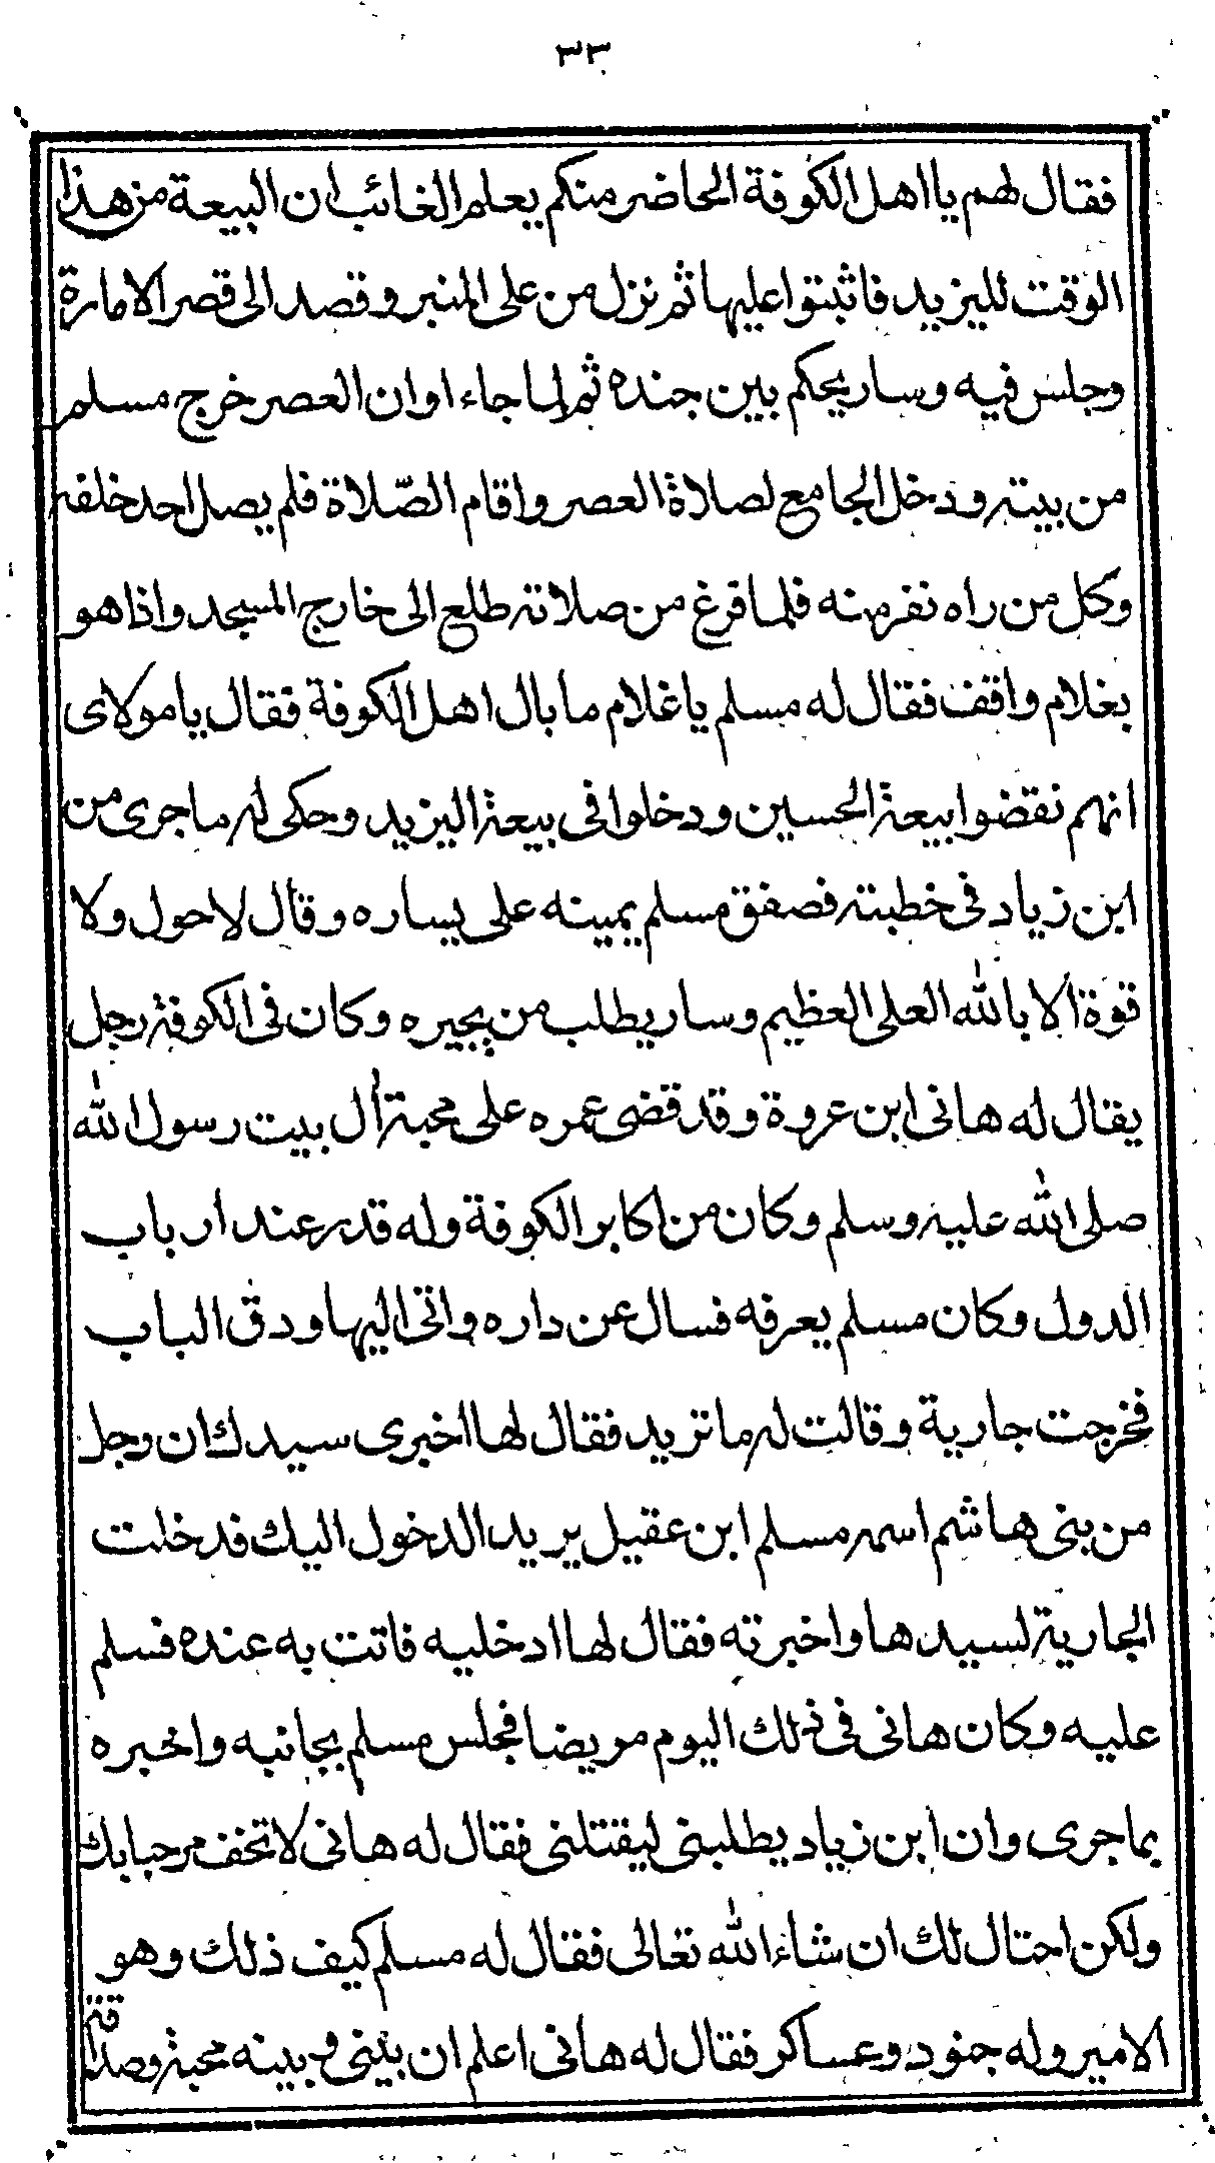 ٣٣
فقال لهم يا اهل الكوفة الحاضر منكم يعلم الغائب ان البيعة من هذا
الوقت لليزيد فاثبتوا عليها ثم نزل من على المنبر وقصد الى قصر الامارة
وجلس فيه وسار يحكم بين جنده ثم لما جاء اوان العصر خرج مسلم
من بيته ودخل الجامع لصلاة العصر واقام الصّلاة فلم يصل احد خلفه
وكل من راه نفر منه فلما فرغ من صلاته طلع الى خارج المسجد واذا هو
بغلام واقف فقال له مسلم يا غلام ما بال اهل الكوفة فقال يا مولاى
انهم نقضوا بيعة الحسين ودخلوا فى بيعة اليزيد وحكى له ما جرى من
ابن زياد فى خطبته فصفق مسلم يمينه على يساره وقال لا حول ولا
قوة الا بالله العلى العظيم وسار يطلب من يجيره وكان فى الكوفة رجل
يقال له هانى ابن عروة وقد قضى عمره على محبة أل بيت رسول الله
صلى الله عليه وسلم وكان من اكابر الكوفة وله قدر عند ارباب
الدول وكان مسلم يعرفه فسال عن داره واتى اليها ودق الباب
فخرجت جارية وقالت له ما تريد فقال لها اخبرى سيدك ان رجل
من بنى هاشم اسمه مسلم ابن عقيل يريد الدخول اليك فدخلت
الجارية لسيدها واخبرته فقال لها ادخليه فاتت به عنده فسلم
عليه وكان هانى فى ذلك اليوم مريضا فجلس مسلم بجانبه واخبره
بما جرى وان ابن زياد يطلبنى ليقتلنى فقال له هانى لا تخف مرحبا بك
ولكن احتال لك ان شاء الله تعالى فقال له مسلم كيف ذلك وهو
الامير وله جنود وعساكر فقال له هانى اعلم ان بينى وبينه محبة وصداقة